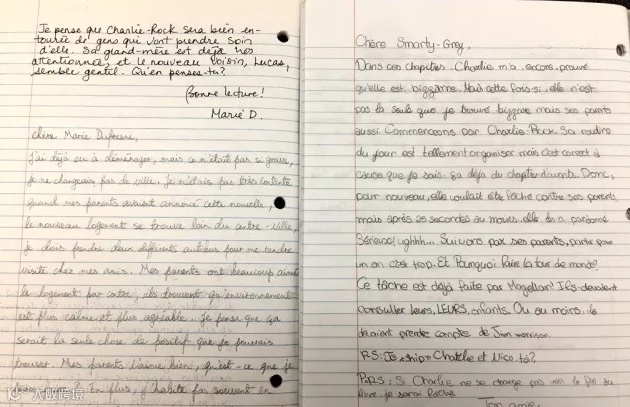 Je pense que Charlie-Rock sera bien en-
tourée de gens qui vont prendre soin
d'elle. Sa grand-mère est déjà très
attentionnée, et le nouveau voisin, Lucas,
semble gentil. Qu'en penses-tu?
Bonne lecture!
Marie D.
chère Marie Dufresne,
j'ai déjà eu à déménager, mais ce n'était pas si grave,
je ne changeais pas de ville. Je n'étais pas très contente
quand mes parents avaient annoncé cette nouvelle,
le nouveau logement se trouve loin du centre-ville,
je dois prendre deux différents autobus pour me rendre
visite chez mes amis. Mes parents ont beaucoup aimé
le logement par contre, ils trouvent qu'environnement
est plus calme et plus agréable. je pense que ça
serait la seule chose de positif que je pourrais
trouver. Mes parents l'aime bien, qu'est-ce que je
En plus, j'habite pas souvent en
Chère Smarty-Grey,
Dans ces chapitres, Charlie m'a encore prouvé
qu'elle est bizzarre. Mais cette fois si, elle n'est
pas la seule que je trouve bizzare mais ses parents
aussi. Commençons par Charlie-Rock. Sa routine
du jour est tellement organiser mais c'est correct à
cause que je sais ça déja du chapitre d'avant. Donc,
pour nouveau, elle voulait être fâché contre ses parents,
mais après 25 secondes au moins, elle les a pardonné.
Sérieux! ughhh... Suivons par ses parents, partir pour
un an c'est trop. Et Pourquoi faire la tour de monde?
Ce tâche est déjà faite par Magellan! Ils devraient
consulter leurs, LEURS, enfants. Ou au moins, ils
devraient prendre compte de Jim morrison.
P.S: Je ship Charlie et Nico, toi?
P.P.S: Si Charlie ne se change pas vers la fin du
livre, je serai fâché.
Ton amie,
大数跨境